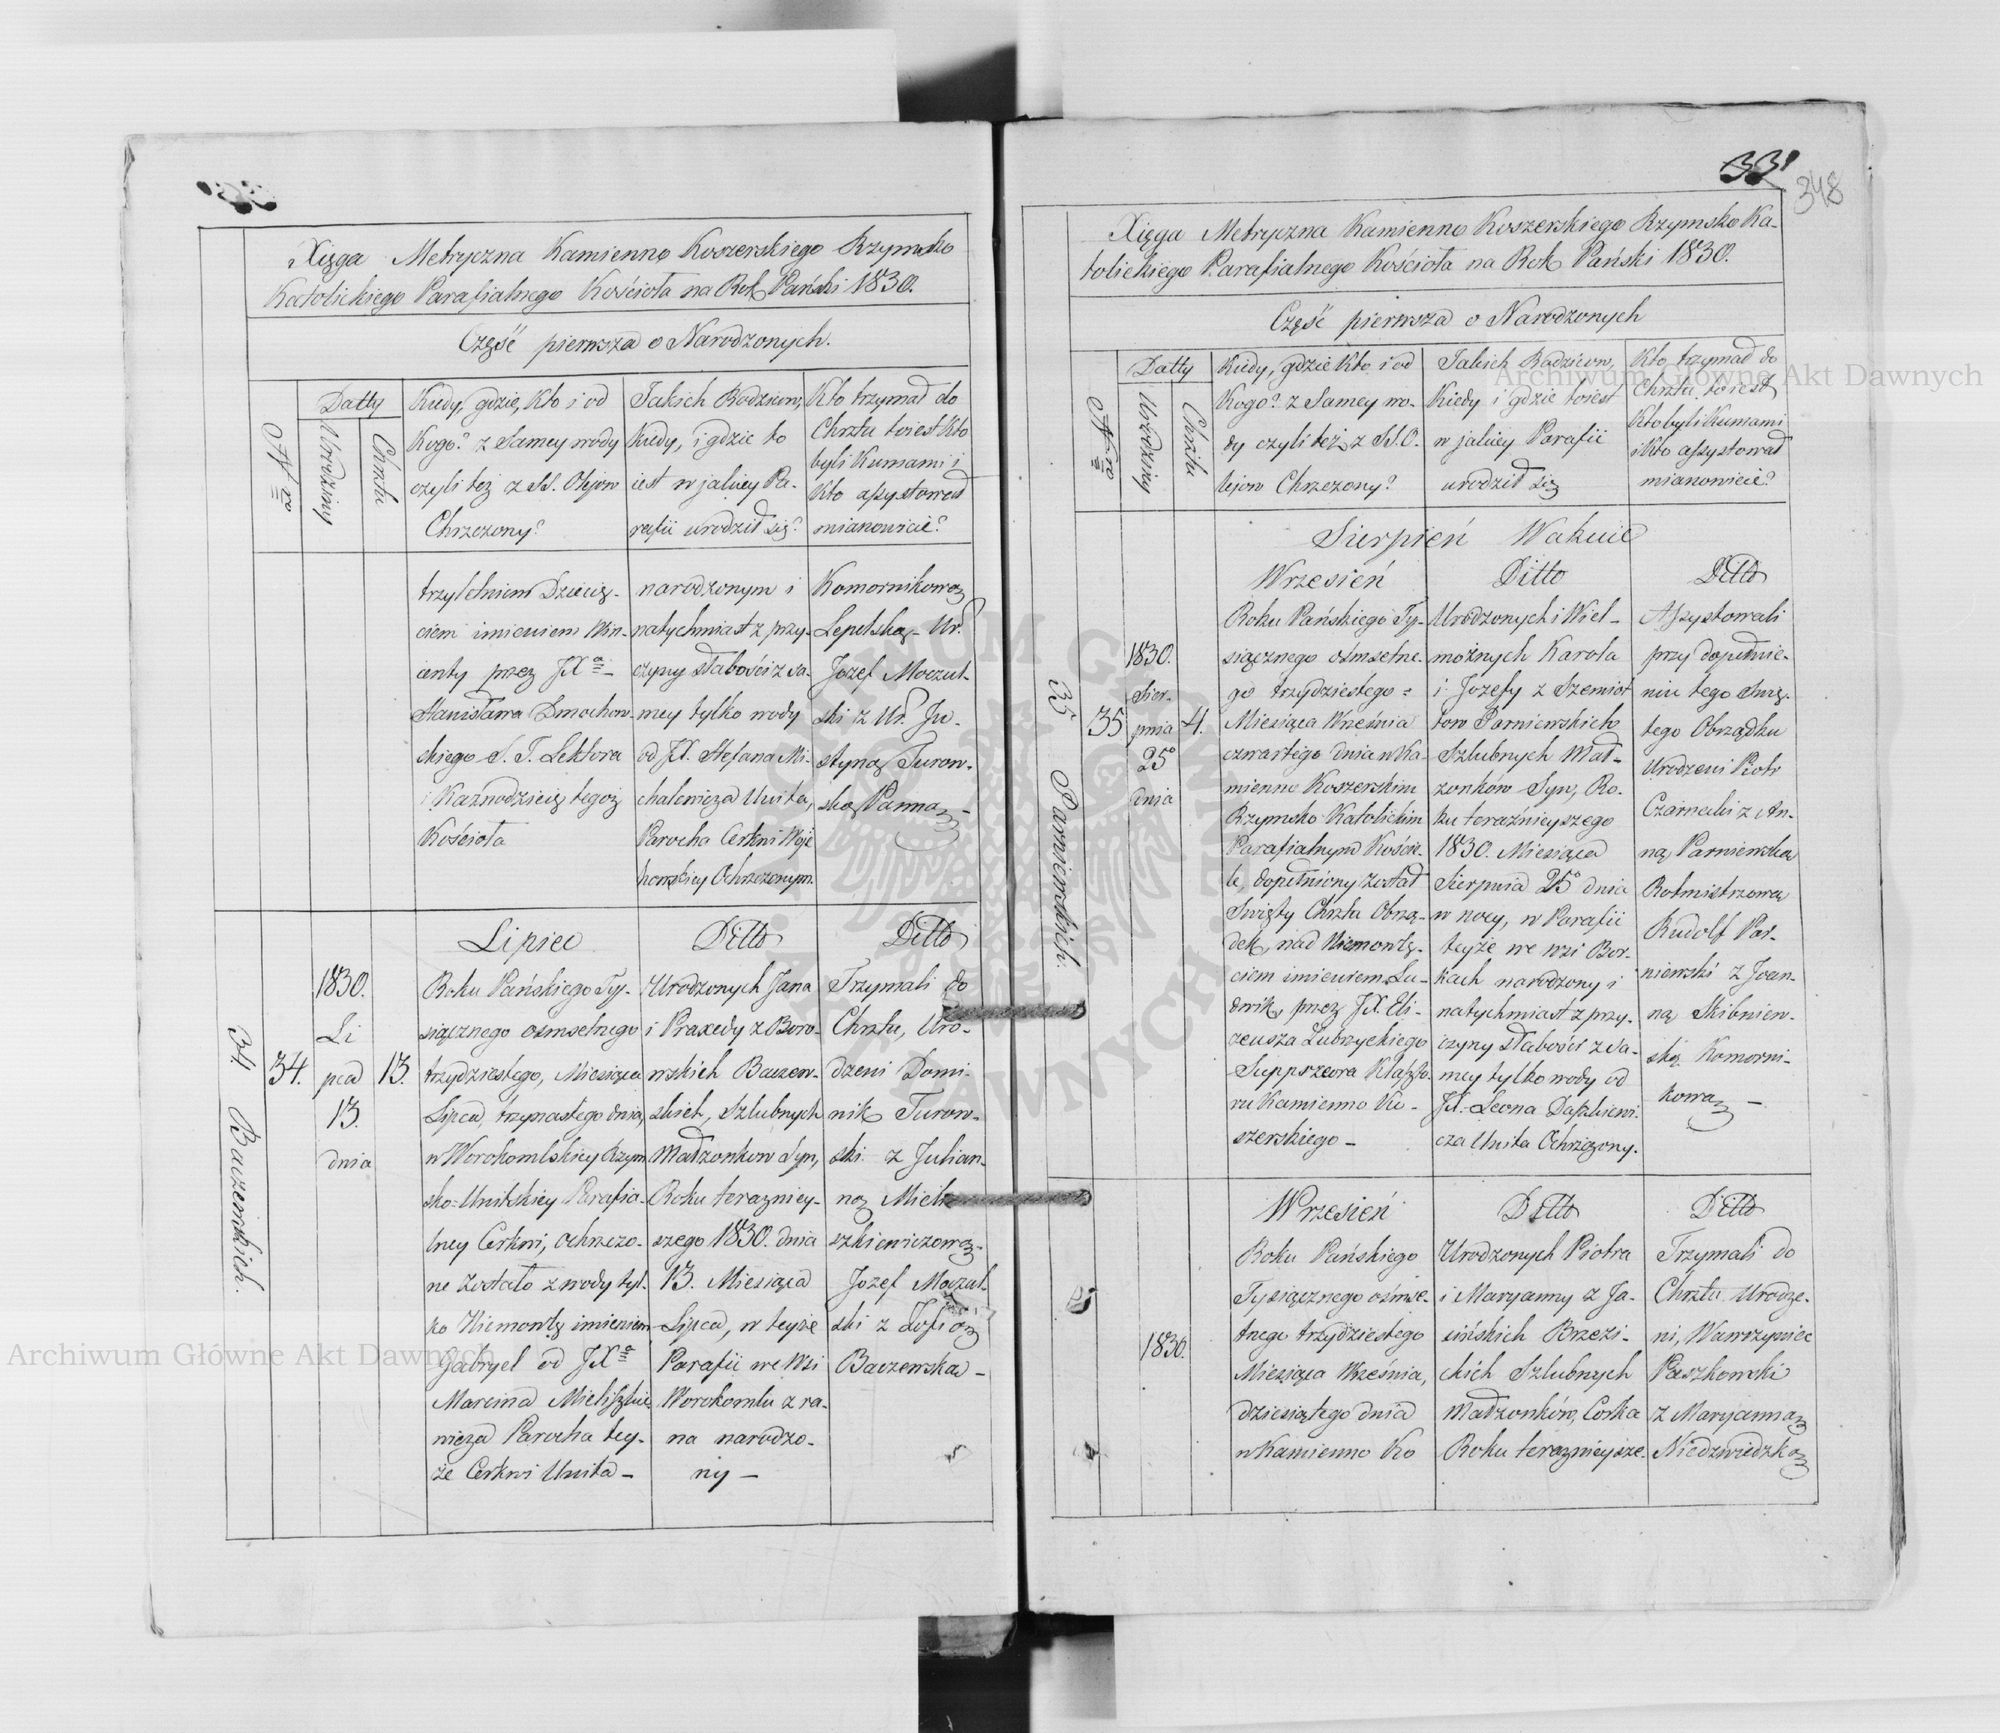 33
348
Xięga Metryczna Kamienno Koszerskiego Rzymsko
Katolickiego Parafialnego Kościoła na Rok Pański 1830.
Część pierwsza o Narodzonych.
Nro
Datty
Urodziny
Chrztu
Kiedy, gdzie, Kto i od
Kogo? z Samey wody
czyli też z SS. Olejow
Chrzczony?
Jakich Rodziców,
Kiedy, i gdzie to
iest w jakiey Pa-
rafii urodził się?
Kto trzymał do
Chrztu toiest Kto
byli Kumami i
Kto assystował
mianowicie?
trzyletniem Dziecię-
ciem imieniem Win-
centy przez JXa
Stanisława Dmochow-
skiego S. T. Lektora
i Kaznodzieię tegoż
Kościoła
narodzonym i
natychmiast z przy-
czyny słabości z sa-
mey tylko wody
od JX. Stefana Mi-
chalewicza Unita,
Parocha Cerkwi
Ochrzczonym.
Komornikową
Lepelską- Ur.
Jozef Moczul-
ski z Ur. Ju-
styną Turow-
ską Panną-
34 Baczewskich.
34.
1830.
Li
pca
13.
dnia
13.
Lipiec
Roku Pańskiego Ty-
siącznego ośmsetnego
trzydziestego, Miesiąca
Lipca, trzynastego dnia,
w Worokomlskiey Rzym
sko=Unitskiey Parafia-
lney Cerkwi, ochrzczo-
ne zostało z wody tyl-
ko Niemowlę imieniem
Gabryel od JXa
Marcina Mieliszkie-
wicza Parocha tey-
że Cerkwi Unita-
Ditto
Urodzonych Jana
i Praxedy z Boro-
wskich Baczew-
skich, Szlubnych
Małzonkow Syn,
Roku terazniey-
szego 1830. dnia
13. Miesiąca
Lipca, w teyże
Parafii we Wsi
Worokomlu z ra-
na narodzo-
ny-
Ditto
Trzymali do
Chrztu, Uro-
dzeni Domi-
nik Turow-
ski z Julian-
ną Miele
szkiewiczową-
Jozef Moczul-
ski z Zofią
Baczewska-
Xięga Metryczna Kamienno Koszerskiego Rzymsko Ka-
tolickiego Parafialnego Kościoła na Rok Pański 1830.
Część pierwsza o Narodzonych
Nro
Datty
Urodziny
Chrztu
Kiedy, gdzie Kto i od
Kogo? z Samey wo-
dy czyli też z SS. O-
lejow Chrzczony?
Jakich Rodziców,
Kiedy i gdzie toiest
w jakiey Parafii
urodził się
Kto trzymał do
Chrztu toiest
Kto byli Kumami
i Kto assystował
mianowicie?
Sierpień Wakuie
35 Parniewskich.
35
1830.
Sier-
pnia
25o
dnia
4.
Wrzesień
Roku Pańskiego Ty-
siącznego ośmsetne-
go trzydziestego=
Miesiąca Września
czwartego dnia w Ka-
mienno Koszerskim
Rzymsko Katolickim
Parafialnym Koście-
le, dopełniony został
Swięty Chrztu Obrzą-
dek, nad Niemowlę-
ciem imieniem Lu-
dwik, przez JX. Eli-
zeusza Zubrzyckiego
Suppszeora Klaszto-
ru Kamienno Ko-
szerskiego-
Ditto
Urodzonych i Wiel-
możnych Karola
i Jozefy z Szemiot
tow Parniewskich
Szlubnych Mał-
żonków Syn, Ro-
ku teraźnieyszego
1830. Miesiąca
Sierpnia 25o dnia
w nocy, w Parafii
teyże we wsi Bor-
kach narodzony i
natychmiast z przy-
czyny słabości z Sa-
mey tylko wody od
JX. Leona Daszkiewi
cza Unita Ochrzczony.
Ditto
Assystowali
przy dopełnie-
niu tego Swię-
tego Obrządku
Urodzeni Piotr
Czarnecki z An-
ną Parniewską
Rotmistrzową
Rudolf Par-
niewski z Joan-
ną Skibniew-
ską Komorni-
kową-
1830.
Wrzesień
Roku Pańskiego
Tysiącznego ośmse-
tnego trzydziestego
Miesiąca Września,
dziesiątego dnia
w Kamienno Ko
Ditto
Urodzonych Piotra
i Maryanny z Ja-
sińskich Brzezi-
ckich Szlubnych
Małzonków, Corka
Roku teraznieysze-
Ditto
Trzymali do
Chrztu Urodze-
ni, Wawrzyniec
Paszkowski
z Maryanną
Niedzwiedzką
Archiwum Główne Akt Dawnych
Archiwum Główne Akt Dawnych